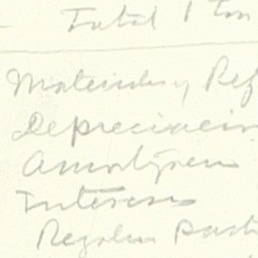 Total 1 Ton
Materiales y Ref
Depreciacion
Amortizacion
Intereses
Regalia